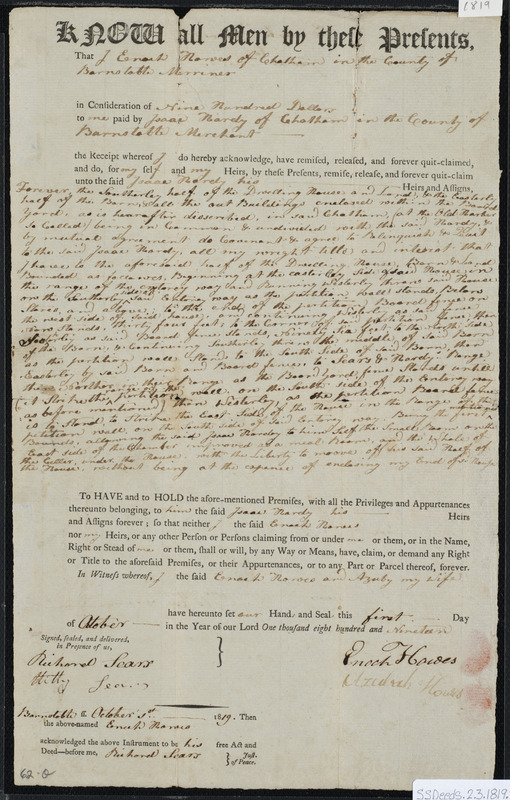 1819
KNOW all Men by these Presents,
That I Enoch Howes of Chatham in the County of
Barnstable Merriner
in Consideration of Nine Hundred Dollars
to me paid by Isaac Hardy of Chatham in the County of
Barnstable Merchant
the Receipt whereof I do hereby acknowledge, have remised, released, and forever quit-claimed,
and do, for my self and my Heirs, by these Presents, remise, release, and forever quit-claim
unto the said Isaac Hardy his Heirs and Assigns,
Forever, the Southerly half of the Dwelling House and Land, & the Easterly
half of the Barn, & all the out Buildings enclosed within the
Yard: as is hereafter discribed, in said Chatham, (at the Old Harbor
so Called) being in Common & undivided with the said Hardy, &
by mutual agreement do Covenant & agree to Relinquish & Quit
to the said Isaac Hardy, all my wright title and interest that
I have to the aforesaid half of the Dwelling House, Barn & Land
Bounded as follows, Beginning at the easterly Side of said House, in
the range of the entery way and Running Westerly threw said House
on the Southerly side said Entery way as the partition wall Stands, Below
Stares, and aligned to the end of the partition Board fence on
the west side of said House, then continuing Westerly as said Board fence
now Stands thirty four feet, to the Corner of said partition fence, then
Southerly as said Board fence Stands feet to the North Side
of the Barn, & Continuing Southerly threw the middle of said Barn
as the partition wall Stands to the South side of said Barn, then
Easterly by said Barn and Board fence to Sears & Hardy's Range
then Northerly in the Range as the Board yard fence Stands untill
it Strikes the partition wall, on the South side of the Entery way
as before mentioned, then Westerly as the partition Board fence
is to Stand to the East Side of the House in the Range of the
petition wall on the South side of said Entery way Being the
Bounds, allowing the said Isaac Hardy to himself the Small Room on the
East side of the Chamber improved as a meal Room, and the whole of
the Cellar under the House with the Liberty to move off his said Half of
the House without being at the expence of enclosing my End of House
To HAVE and to HOLD the afore-mentioned Premises, with all the Privileges and Appurtenances
thereunto belonging, to him the said Isaac Hardy his Heirs
and Assigns forever; so that neither I the said Enoch Howes
nor my Heirs, or any other Person or Persons claiming from or under me or them, or in the Name,
Right or Stead of me or them, shall or will, by any Way or Means, have, claim, or demand any Right
or Title to the aforesaid Premises, or their Appurtenances, or to any Part or Parcel thereof, forever.
In Witness whereof, I the said Enoch Howes and Azuby my wife
have hereunto set our Hand and Seal this first Day
of October in the Year of our Lord One thousand eight hundred and Nineteen
Signed, sealed, and delivered,
in Presence of us,
Richard Sears
Hitty Sears
Enoch Howes
Azubah Howes
Barnstable ss. October 1st 1819. Then
the above-named Enoch Howes
acknowledged the above Instrument to be his free Act and
Deed—before me, Richard Sears
Just.
of Peace.
62-0
SSDeeds.23.1819.